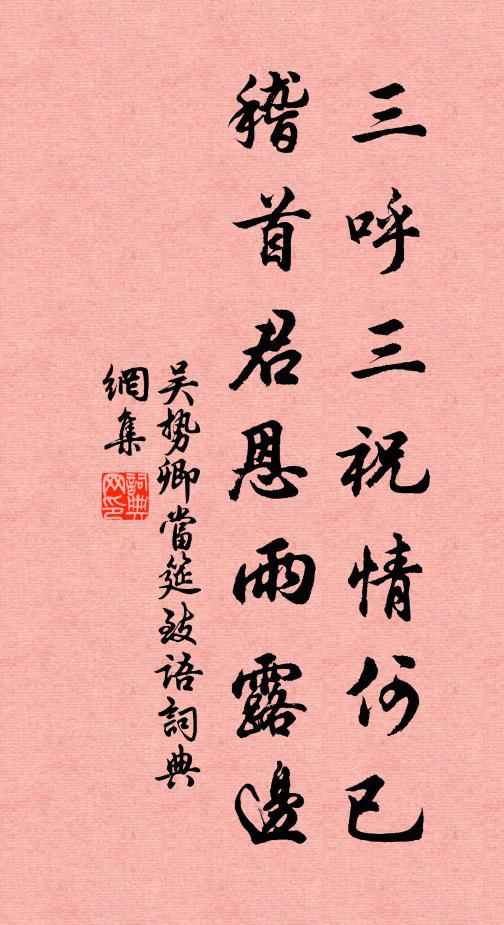 三呼三祝情何已
稽首君恩雨露邊
吴勢卿當筵致語詞典
網集
詞典
网印